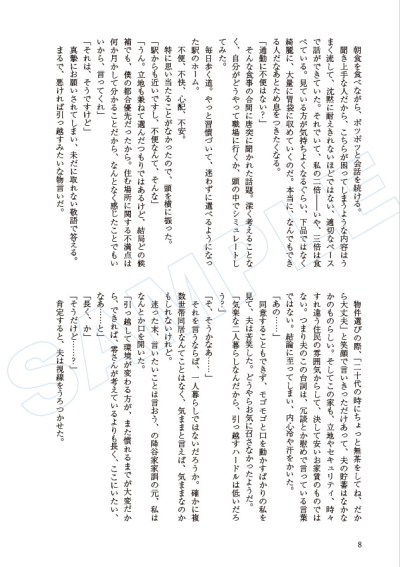 朝食を食べながら、ポツポツと会話を続ける。
聞き上手な人だから、こちらが困ってしまうような内容はう
まく流して、沈黙に耐えきれないほどではない、適切なペース
で話ができていた。それでいて、私の二倍――いや、三倍は食
べている。見ている方が気持ちよくなるぐらい、下品ではなく
綺麗に、大量に胃袋に収めていくのだ。本当に、なんでもでき
る人だなあとため息をつきたくなる。
「通勤に不便はない?」
そんな食事の合間に唐突に聞かれた話題。深く考えることな
く、自分がどうやって職場に行くか、頭の中でシミュレートし
てみた。
毎日歩く道。やっと習慣づいて、迷わずに選べるようになっ
た駅のホーム。
不便、不快、心配、不安。
特に思い当たることがなかったので、頭を横に張った。
「駅からも近いですし、不便なんて、そんな」
「うん。立地も兼ねて選んだつもりではあるけど、結局どの候
補でも、僕の都合優先だったから。住む場所に関する不満点は
何か月かして分かることだから、なんとなく感じたことでもい
いから、言ってくれ」
「それは、そうですけど」
真摯にお願いされてしまい、未だに取れない敬語で答える。
まるで、悪ければ引っ越すみたいな物言いだ。
物件選びの際、「二十代の時にちょっと無茶をしてね、だか
ら大丈夫」と笑顔で言いきっただけあって、夫の貯蓄はなかな
かのものらしい。そしてこの家も、立地やセキュリティ、時々
すれ違う住民の雰囲気からして、決して安いお家賃のものでは
ない。つまり夫のこの台詞は、冗談とか慰めで言っている言葉
ではない。結論に至ってしまい、内心冷や汗をかいた。
「あの……」
同意することもできず、モゴモゴと口を動かすばかりの私を
見て、夫は苦笑した。どうやらお気に召さなかったようだ。
「気楽な二人暮らしなんだから、引っ越すハードルは低いだろ
う?」
「そ、そうかなあ……」
それを言うならば、一人暮らしではないだろうか。確かに複
数世帯同居なんてことはなく、気ままと言えば、気ままなのか
もしれないけれど。
迷った末、言いたいことは言おう、の降谷家家訓の元、私は
なんとか口を開いた。
「引っ越して環境が変わる方が、また慣れるまでが大変だか
ら、できれば、零さんが考えているよりも長く、ここにいたい、
なあ……と」
「長く、か」
「そうだけど……?」
肯定すると、夫は視線をうろつかせた。
8
SAMPLE